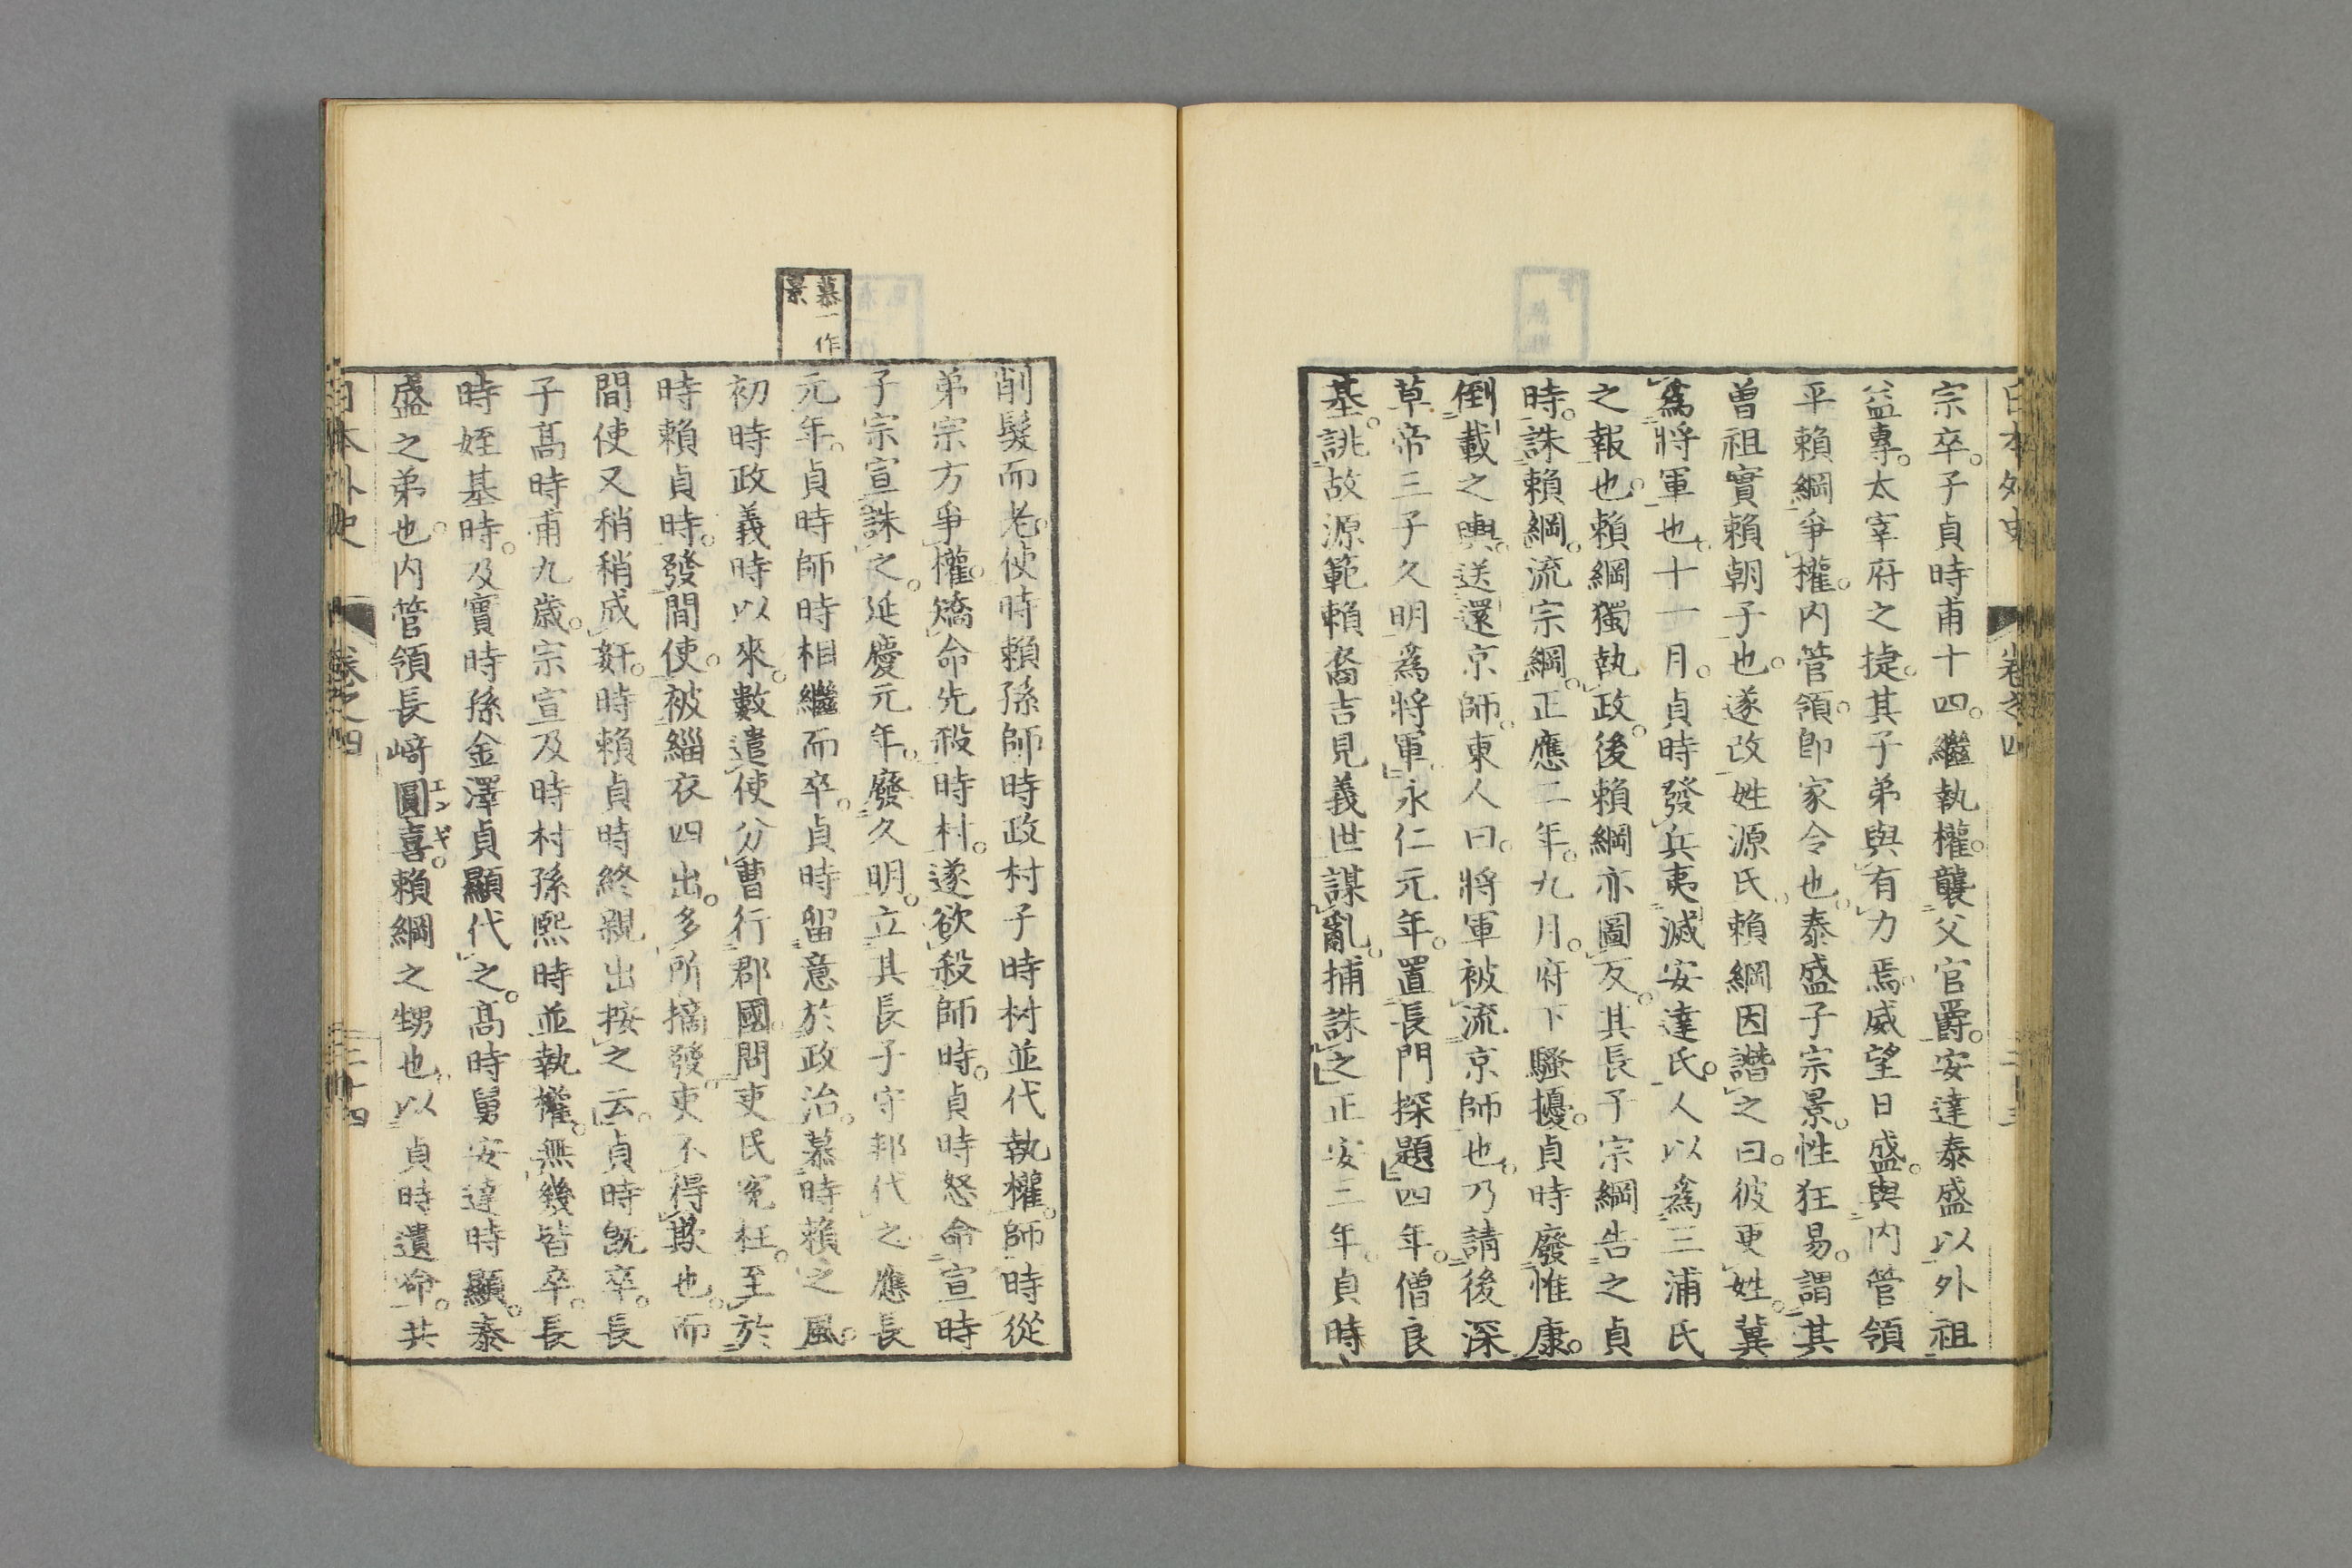 日本外史 卷之四
宗卒。子貞時甫十四。繼執權。襲父官爵。安達泰盛以外祖
益專。太宰府之捷。其子弟與有力焉。威望日盛。與内管領
平賴綱爭權。内管領。卽家令也。泰盛子宗景。性狂易。謂其
曾祖實賴朝子也。遂改姓源氏。賴綱因譖之曰。彼更姓。冀
爲將軍也。十一月。貞時發兵夷滅安達氏。人以爲三浦氏
之報也。賴綱獨執政。後賴綱亦圖反。其長子宗綱告之貞
時。誅賴綱。流宗綱。正應二年。九月。府下騷擾。貞時廢惟康。
倒載之輿。送還京師。東人曰。將軍被流京師也。乃請後深
草帝三子久明爲將軍。永仁元年。置長門探題。四年。僧良
基。誂故源範賴裔吉見義世謀亂。捕誅之。正安三年。貞時
削髮而老。使時賴孫師時政村子時村並代執權。師時從
弟宗方爭權。矯命先殺時村。遂欲殺師時。貞時怒命宣時
子宗宣誅之。延慶元年。廢久明。立其長子守邦代之。應長
元年。貞時師時相繼而卒。貞時留意於政治。慕時賴之風。
慕一作
景
初時政義時以來。數遣使分曹行郡國。問吏民寃枉。至於
時賴貞時。發間使。被緇衣四出。多所摘發。吏不得欺也。而
間使又稍稍成姧。時賴貞時終親出按之云。貞時旣卒。長
子髙時甫九歲。宗宣及時村孫熙時並執權。無幾皆卒。長
時姪基時。及實時孫金澤貞顯代之。髙時舅安達時顯。泰
盛之弟也。内管領長﨑圓喜。賴綱之甥也。以貞時遺命。共
エンキ
日本外史 卷之四 二十四